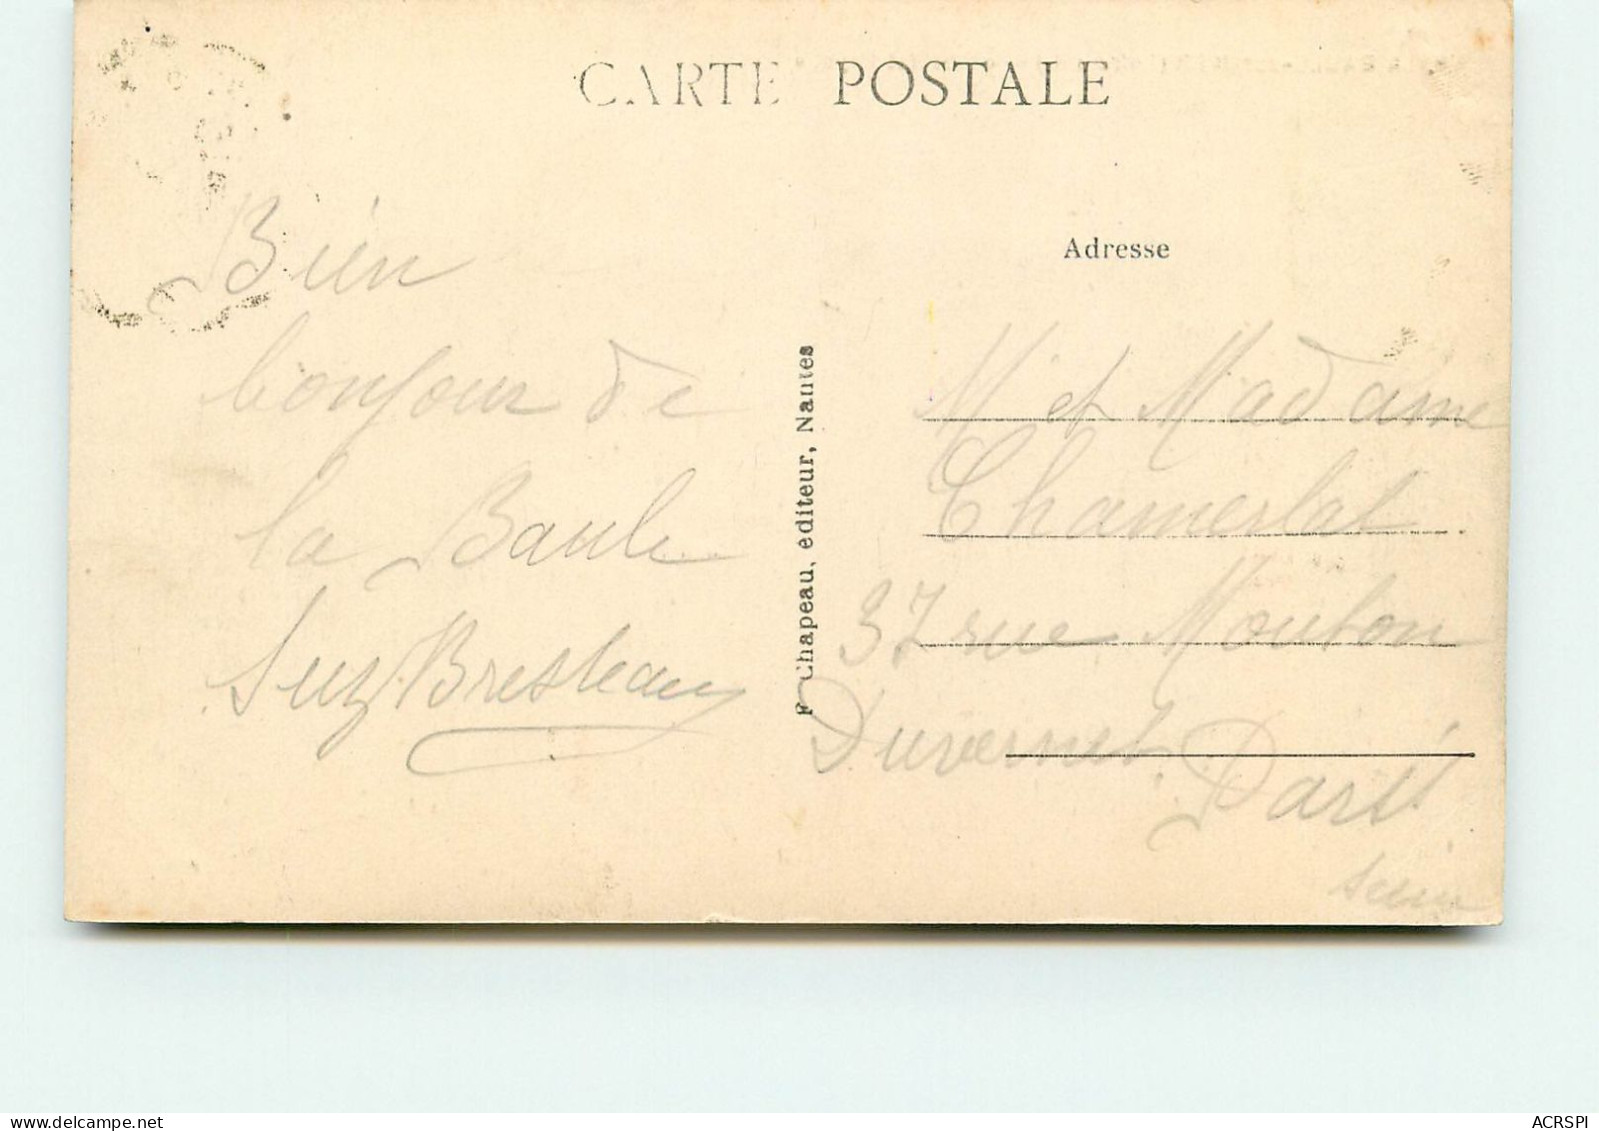 CARTE POSTALE
Bien
bonjour de
la Baule
Suz Bresteau
F. Chapeau, editeur, Nantes
Adresse
M et Madame
Chamerlat
37 rue Mouton
Duvernet. Paris
Seine
ACRSPI